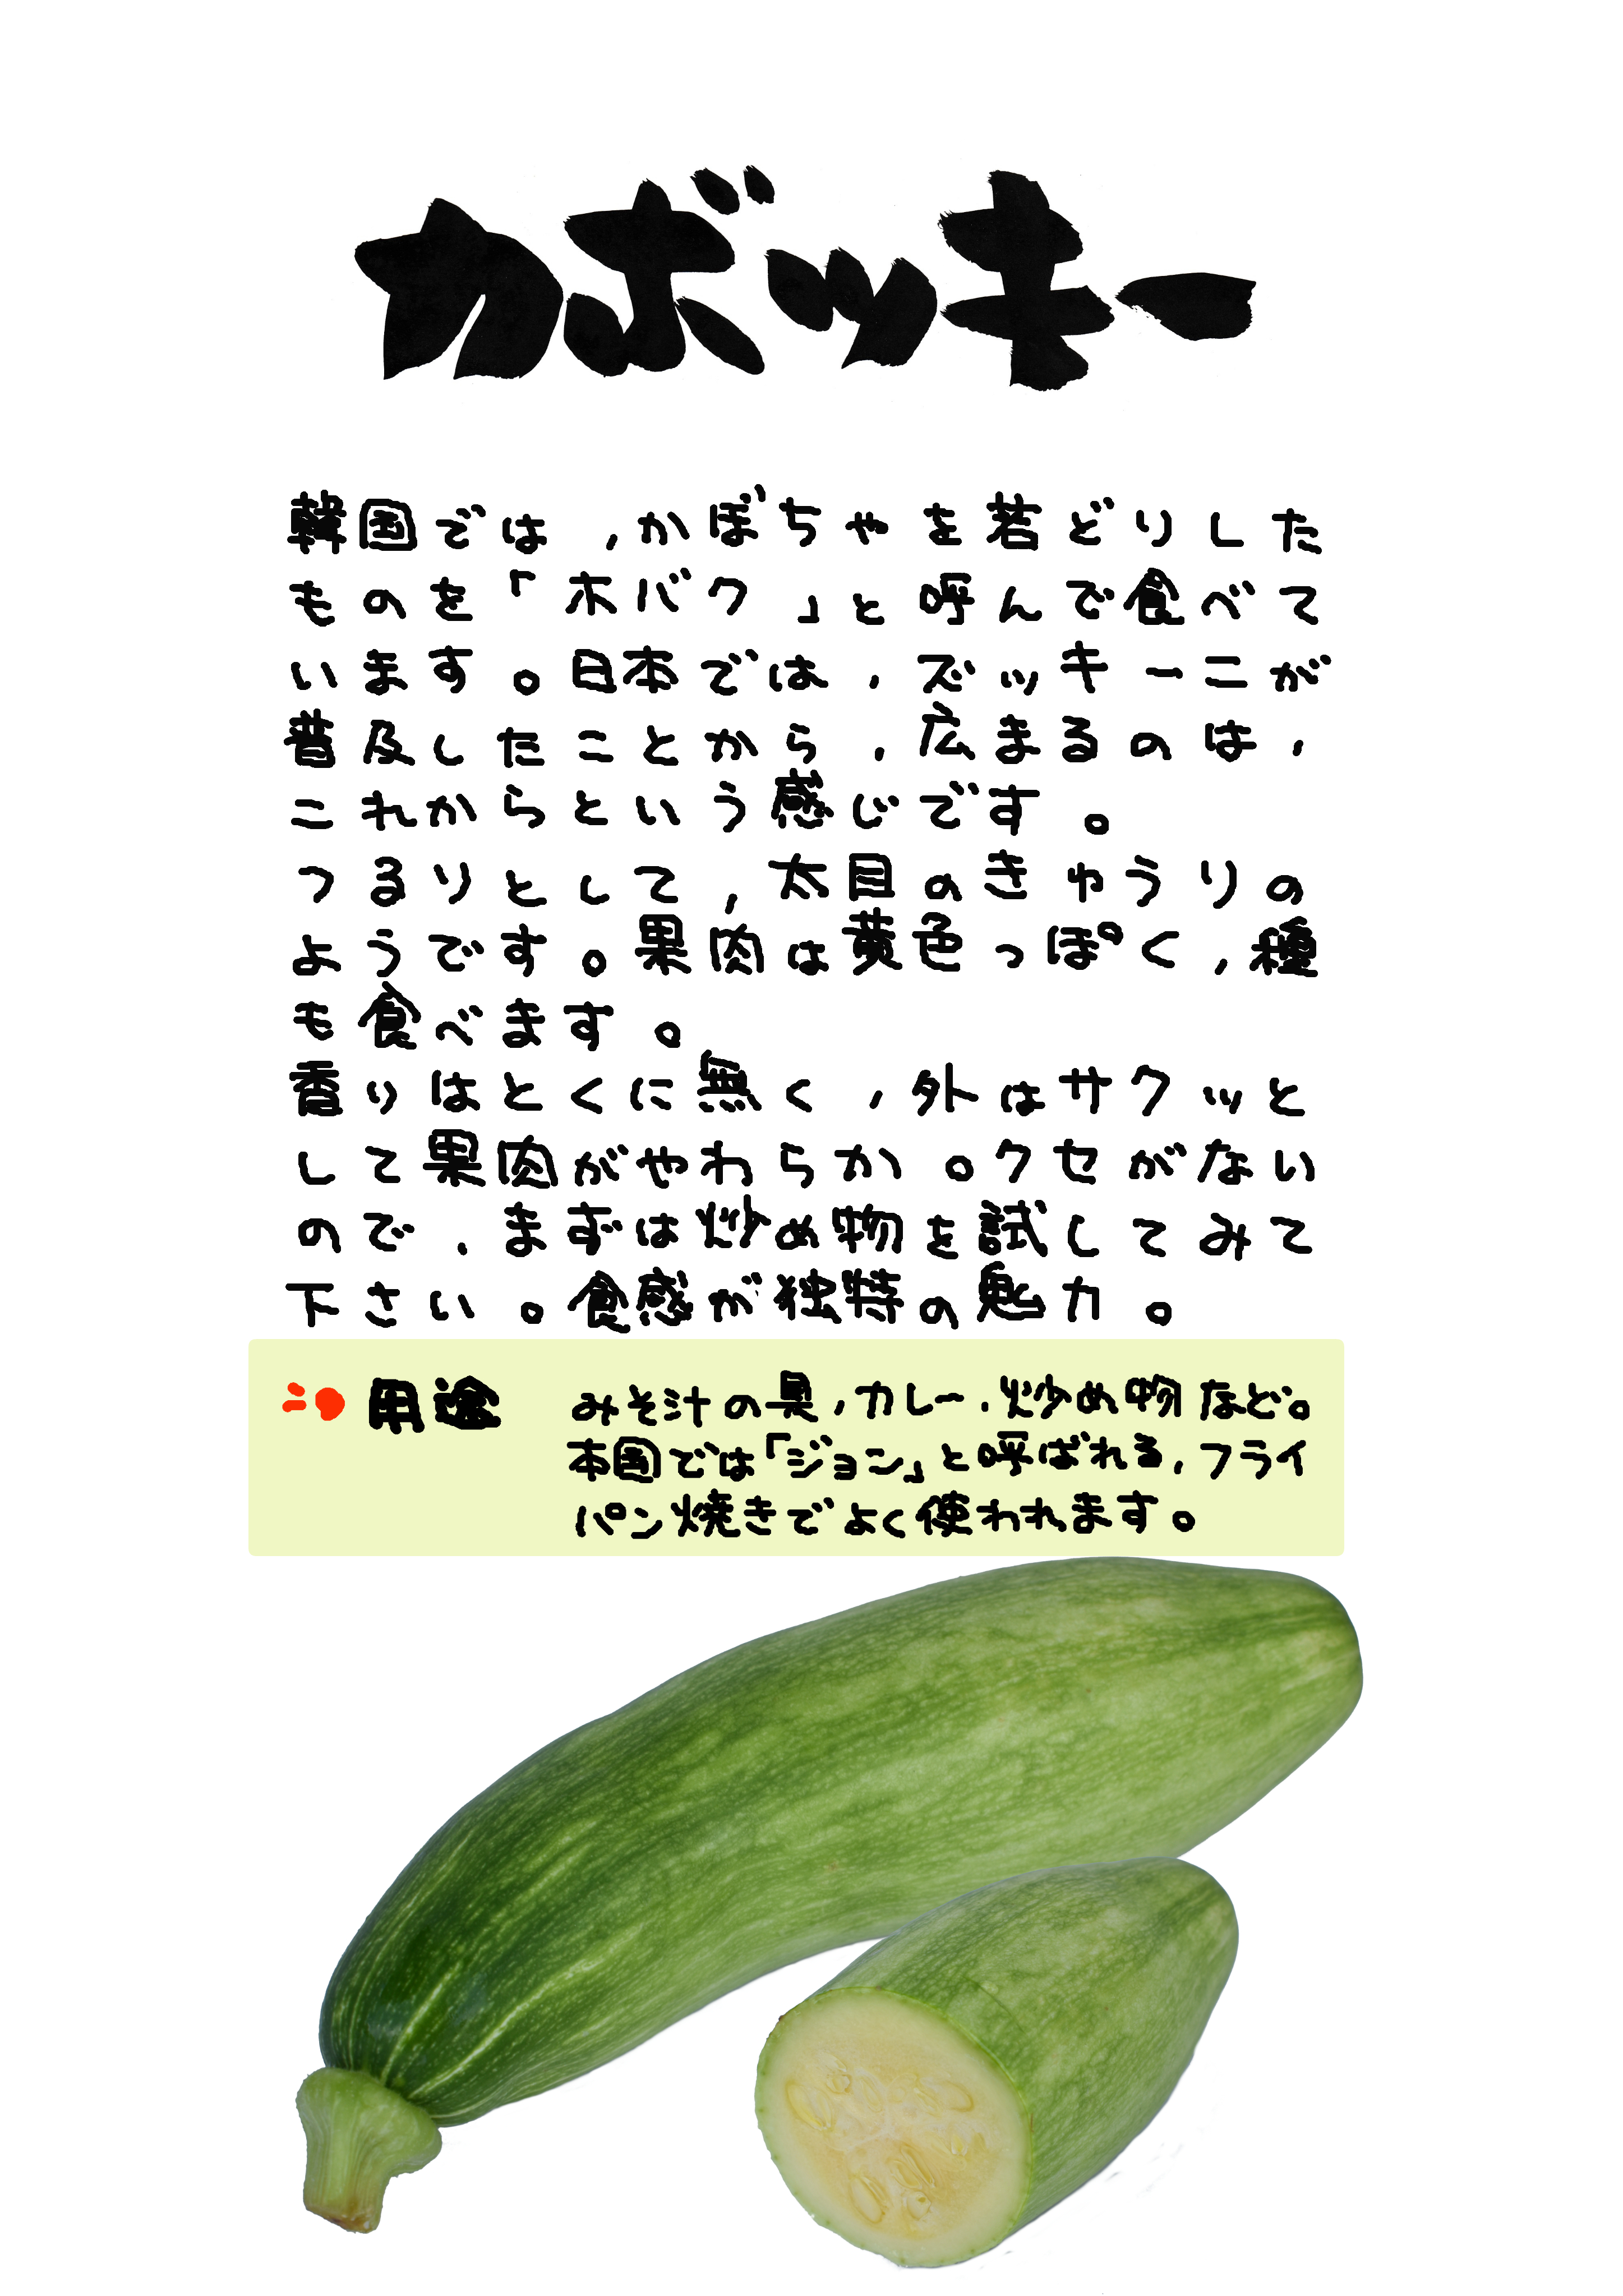 カボッキー
韓国では，かぼちゃを若どりした
ものを「ホバク」と呼んで食べて
います。日本では，ズッキーニが
普及したことから，広まるのは，
これからという感じです。
つるりとして，太目のきゅうりの
ようです。果肉は黄色っぽく，種
も食べます。
香りはとくに無く，外はサクッと
して果肉がやわらか。クセがない
ので，まずは炒め物を試してみて
下さい。食感が独特の魅力。
用途
みそ汁の具，カレー，炒め物など。
本国では「ジョン」と呼ばれる，フライ
パン焼きでよく使われます。